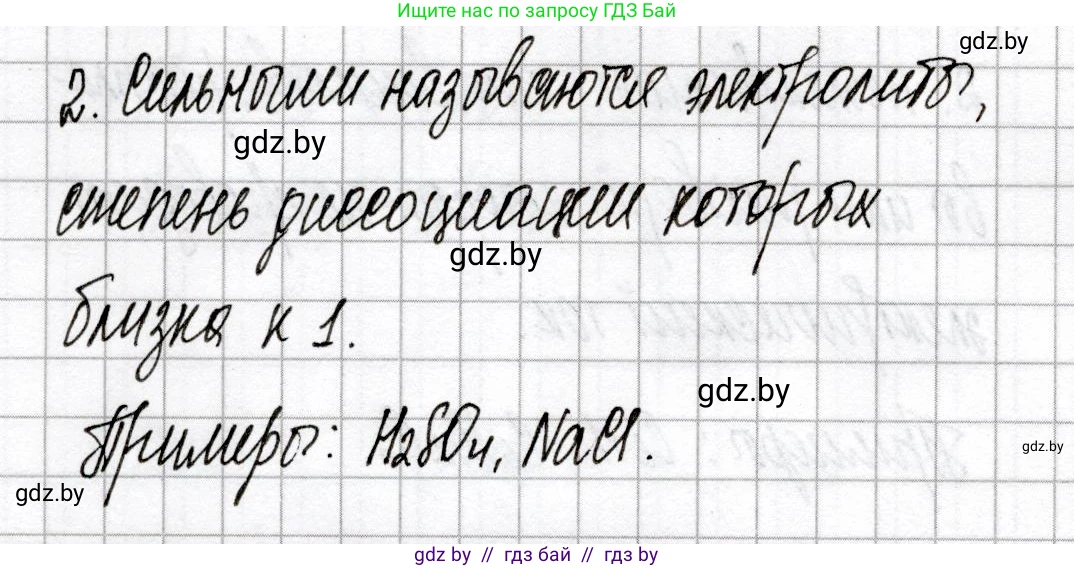 Ищите нас по запросу ГДЗ Бай
gdz.by
2. Сильными называются электролиты,
gdz.by
степень диссоциации которых
gdz.by
близка к 1.
gdz.by
Примеры: H₂SO₄, NaCl.
gdz.by
gdz.by
gdz.by // гдз бай // гдз by